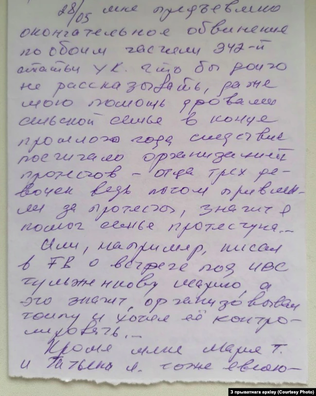 28/05 мне предъявлено
окончательное обвинение
по обоим частям 342-й
статьи УК. Что бы долго
не рассказывать, даже
мою помощь дровами
сельской семье в конце
прошлого года следствие
посчитало организацией
протестов – отца трех де-
вочек ведь потом привлек-
ли за протесты, значит я
помог семье протестуна...
Или, например, писал
в FB о встрече под ЦВС
Тульженкову Марию, а
это значит, организовывал
толпу и хотел её контро-
лировать...
Кроме меня Мария Т.
и Татьяна тоже
З прыватнага архіву (Courtesy Photo)